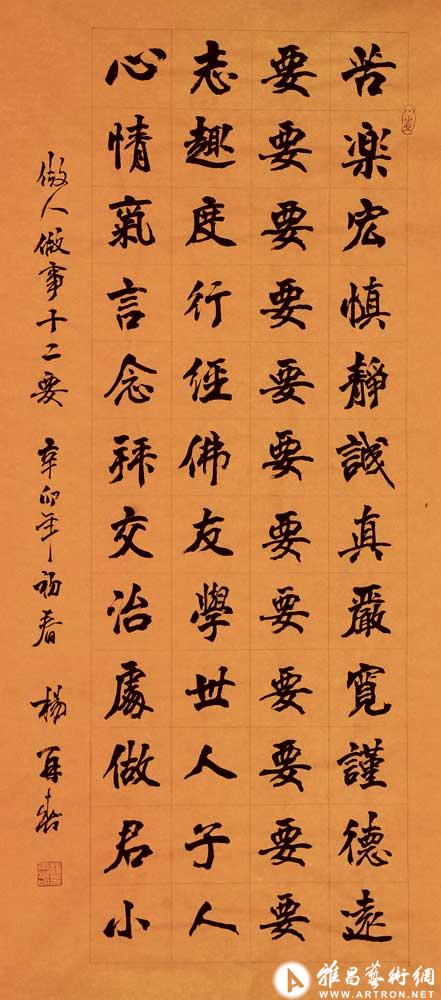 心志要苦
情趣要楽
氣度要宏
言行要慎
念經要靜
拜佛要誠
交友要真
治學要嚴
處世要寬
做人要謹
君子要德
小人要遠
做人做事十二要 辛卯年初春 楊再春
雅昌藝術網
WWW.ARTRON.NET